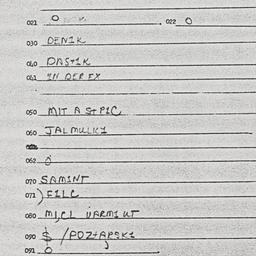 021 O 022 O
030 DENIK
040 DASTIK
041 IN DER EX
050 MIT A STPIC
060 JALMULKI
062 O
070 SAMINT
071 FILC
080 MICL VARMIUT
090 $ /POZTARSKI
091 O